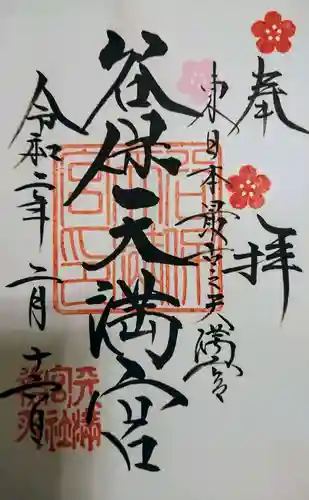 奉拝
東日本最古之天満宮
谷保天満宮
令和二年二月十二日